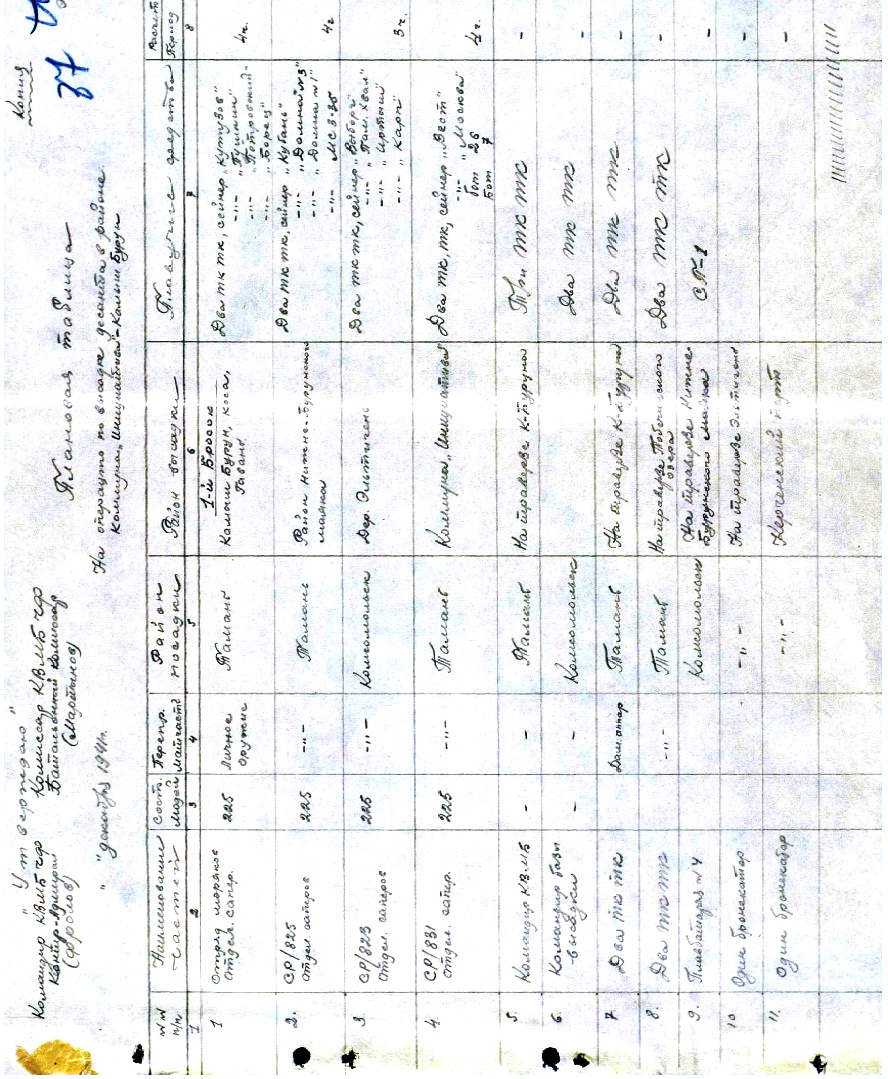 Копия
77
"Утверждаю"
Командир КВМБ ЧФ
Контр-адмирал
(Фролов)
Комиссар КВМБ ЧФ
Батальонный комиссар
(Мартынов)
" " декабря 1941г.
Плановая таблица
На операцию по высадке десанта в районе
Коммуна "Инициатива" - Камыш Бурун
№№ п/п Наименование частей Сост. людей Перепр. Матчасть Район посадки Район высадки Плавучие средства Расчет Период
1 2 3 4 5 6 7 8
1 Отряд моряков 225 Личное Тамань 1-й Бросок Два тк тк, сейнер "Кутузов" 4ч.
Отдел. сапер. оружие Камыш Бурун, коса, -"- "Пушкин"
Гавань -"- "Петровский"-
-"- "Борец"
2. СР/825 225 -"- Тамань Район Нижне-Бурунского Два тк тк, сейнер "Кубань" 4ч
Отдел саперов маяка -"- "Домна №3"
-"- "Домна №1"
-"- МСЗ-35
3. СР/823 225 -"- Комсомольск Дер. Эльтиген Два тк тк, сейнер "Выборг" 3ч.
Отдел саперов -"- "Пом. Хвал"
-"- "Иртыш"
-"- "Карп"
4. СР/831 225 -"- Тамань Коммуна "Инициатива" Два тк, тк, сейнер 4ч.
Отдел. сапер. -"- "Москва"
бот 26
Бот 7
5. Командир КВМБ - - Тамань На траверзе К-Буруна Три тк тк -
6. Командир базы - - Комсомольск Два тк тк -
высадки
7 Два тк тк Дым.аппар Тамань На траверзе К-Буруна Два тк тк -
8. Два тк тк -"- Тамань На траверзе
озера Два тк тк -
9. Плавбатарея №4 Комсомольск На траверзе Нижне- -
Бурунского маяка
10 Один бронекатер -"- На траверзе Эльтигена -
11. Один бронекатер -"- Керченский порт -